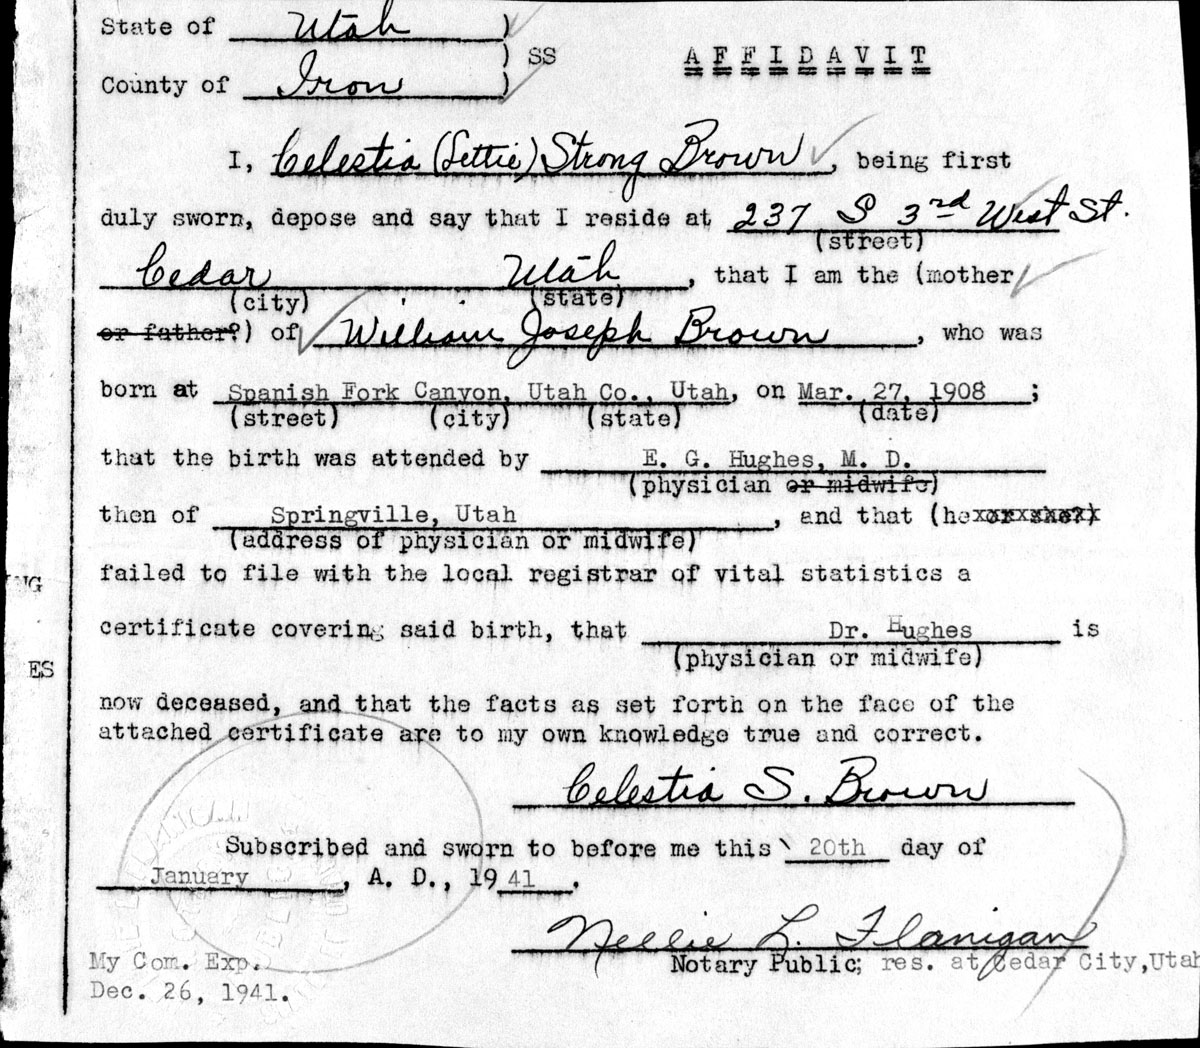 State of Utah )
) SS
AFFIDAVIT
County of Iron )
I, Celestia (Lettie) Strong Brown, being first
duly sworn, depose and say that I reside at 237 S 3rd West St.
(street)
Cedar Utah, that I am the (mother
(city) (state)
or father?) of William Joseph Brown, who was
born at Spanish Fork Canyon, Utah Co., Utah, on Mar. 27, 1908 ;
(street) (city) (state) (date)
that the birth was attended by E. G. Hughes, M. D.
(physician or midwife)
then of Springville, Utah, and that (he or she?)
(address of physician or midwife)
failed to file with the local registrar of vital statistics a
NG
certificate covering said birth, that Dr. Hughes is
(physician or midwife)
ES
now deceased, and that the facts as set forth on the face of the
attached certificate are to my own knowledge true and correct.
Celestia S. Brown
Subscribed and sworn to before me this 20th day of
January, A. D., 1941.
Nellie L. Flanigan
My Com. Exp. Notary Public; res. at Cedar City, Utah
Dec. 26, 1941.